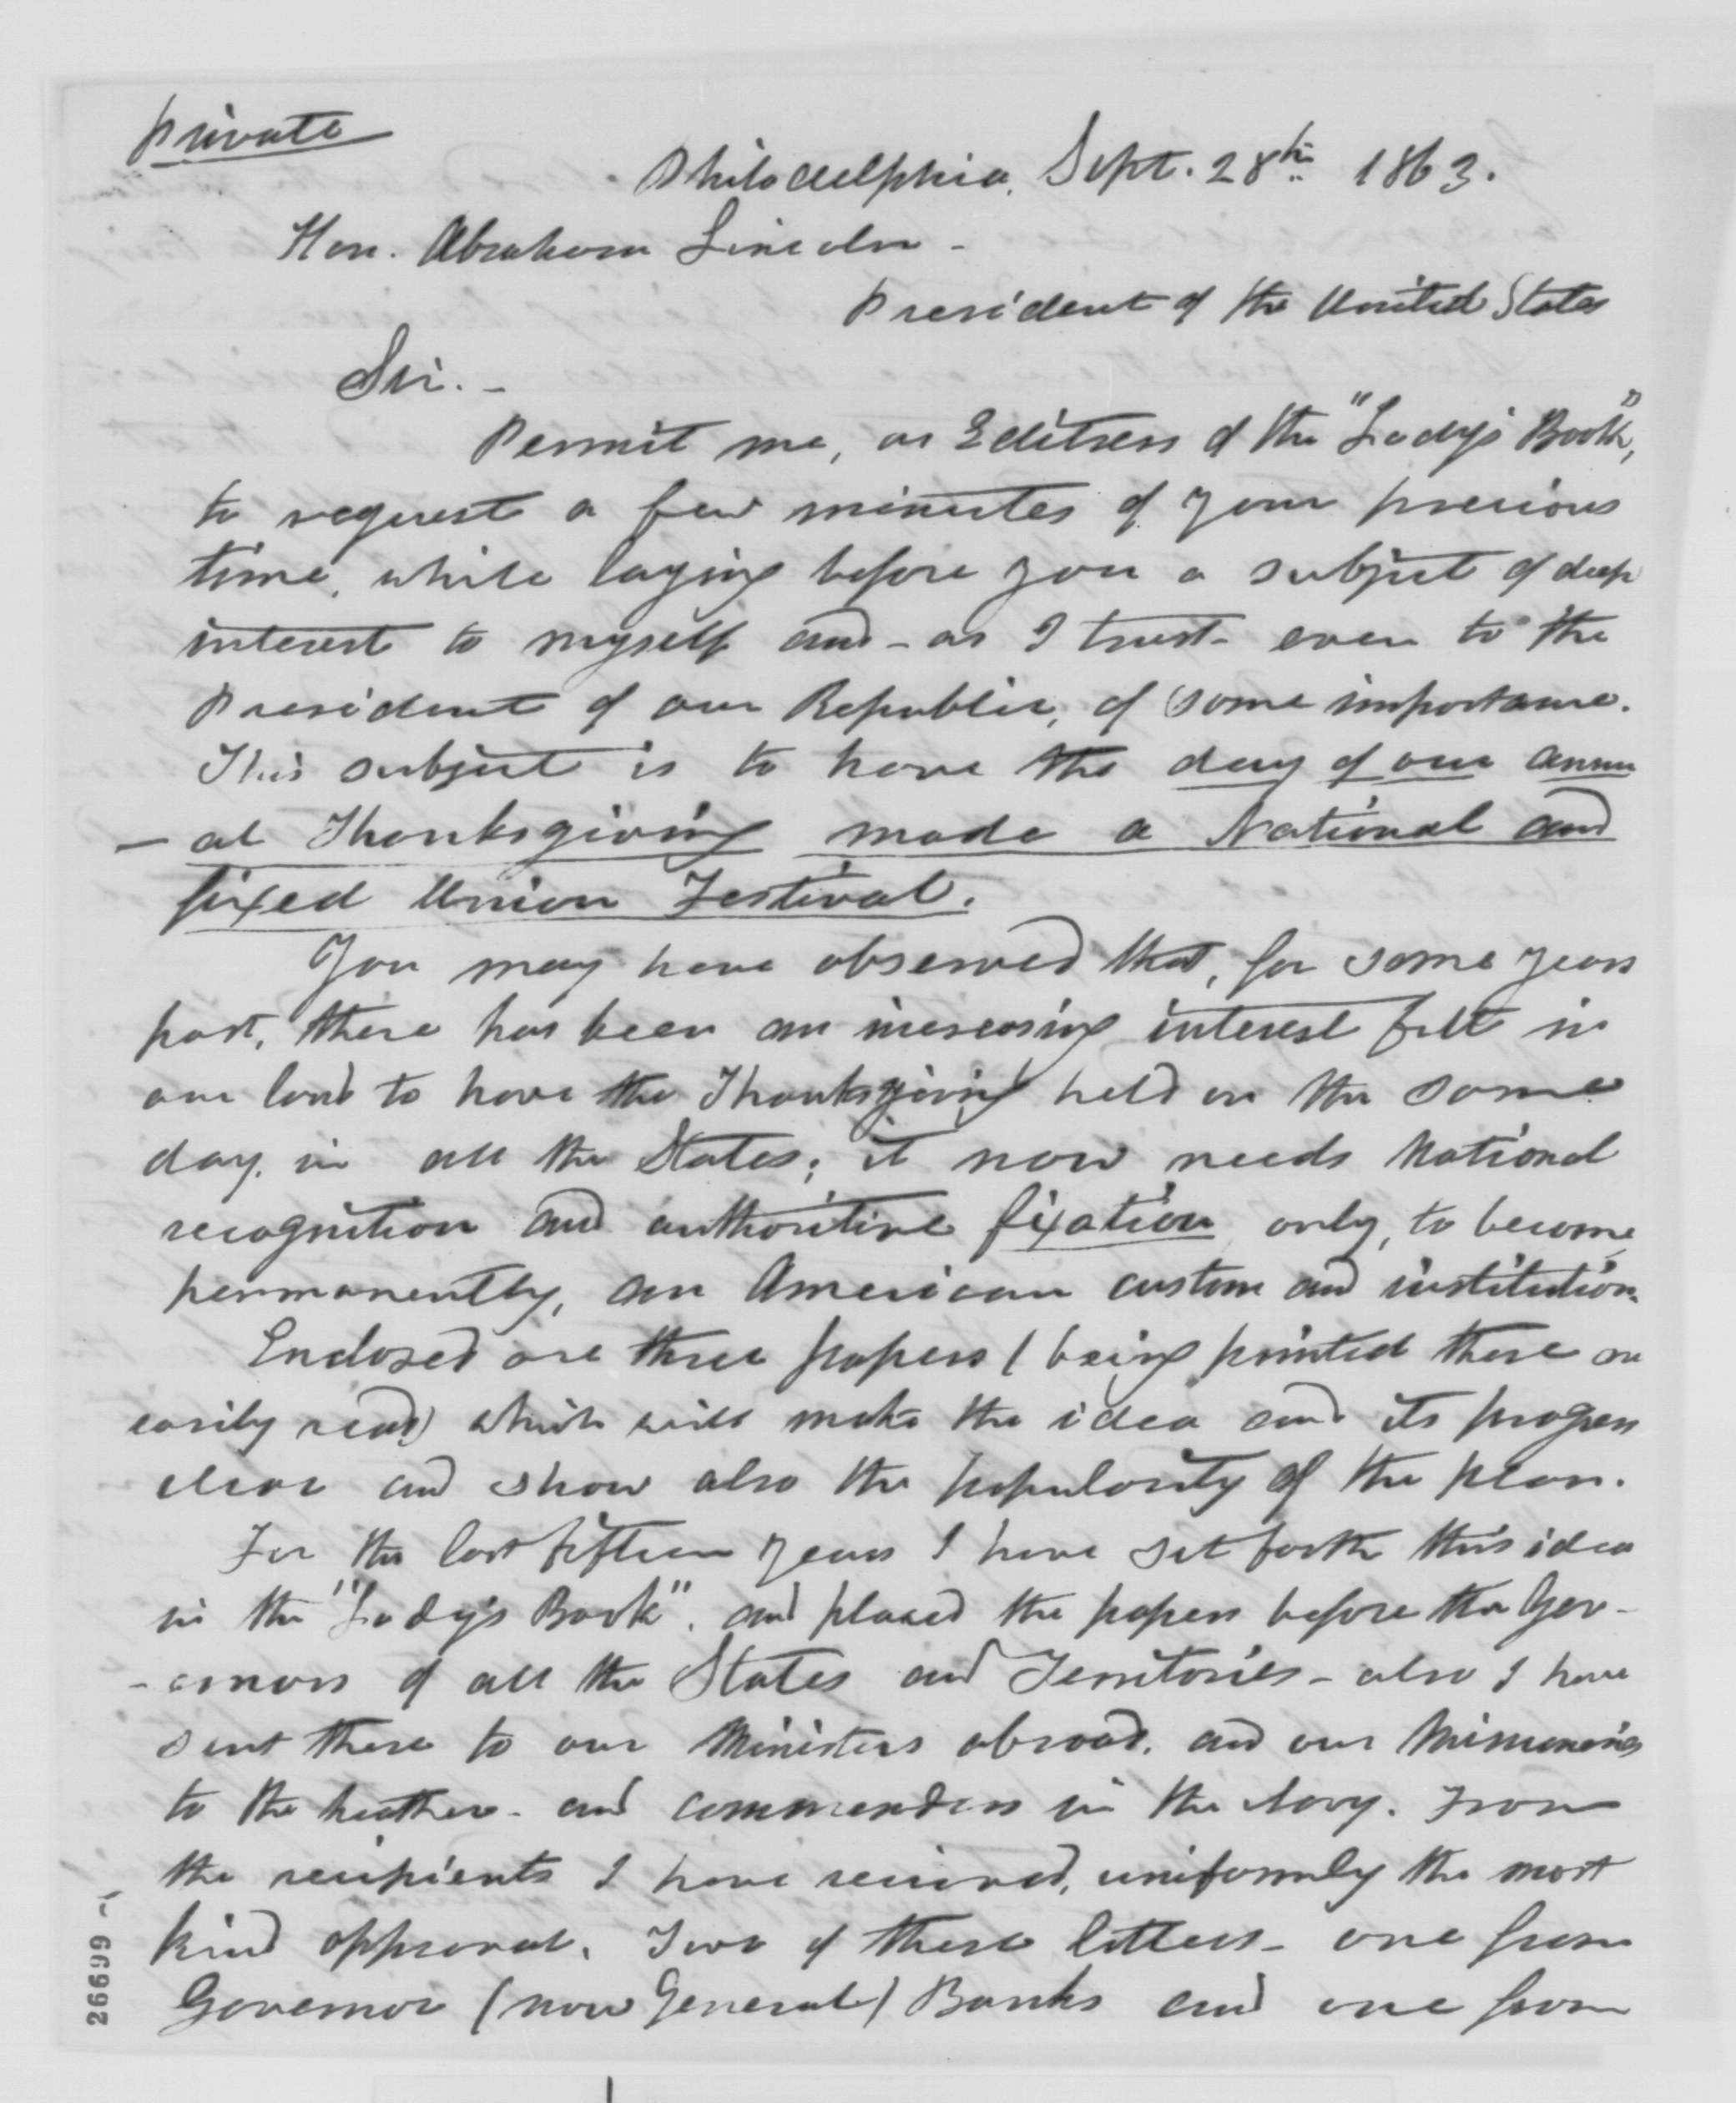 Private
Philadelphia, Sept. 28th 1863.
Hon. Abraham Lincoln -
President of the United States
Sir. -
Permit me, as Editress of the "Lady's Book",
to request a few minutes of your precious
time, while laying before you a subject of deep
interest to myself and - as I trust - even to the
President of our Republic, of some importance.
This subject is to have the day of our annu
- al Thanksgiving made a National and
fixed Union Festival.
You may have observed that, for some years
past, there has been an increasing interest felt in
our land to have the Thanksgiving held on the same
day, in all the States; it now needs National
recognition and authoritive fixation, only, to become
permanently, an American custom and institution.
Enclosed are three papers (being printed these are
easily read) which will make the idea and its progress
clear and show also the popularity of the plan.
For the last fifteen years I have set forth this idea
in the "Lady's Book", and placed the papers before the Gov-
- ernors of all the States and Territories - also I have
sent these to our Ministers abroad, and our Missionaries
to the heathen - and commanders in the Navy. From
the recipients I have received, uniformly the most
kind approval. Two of these letters - one from
Governor (now General) Banks and one from
26699